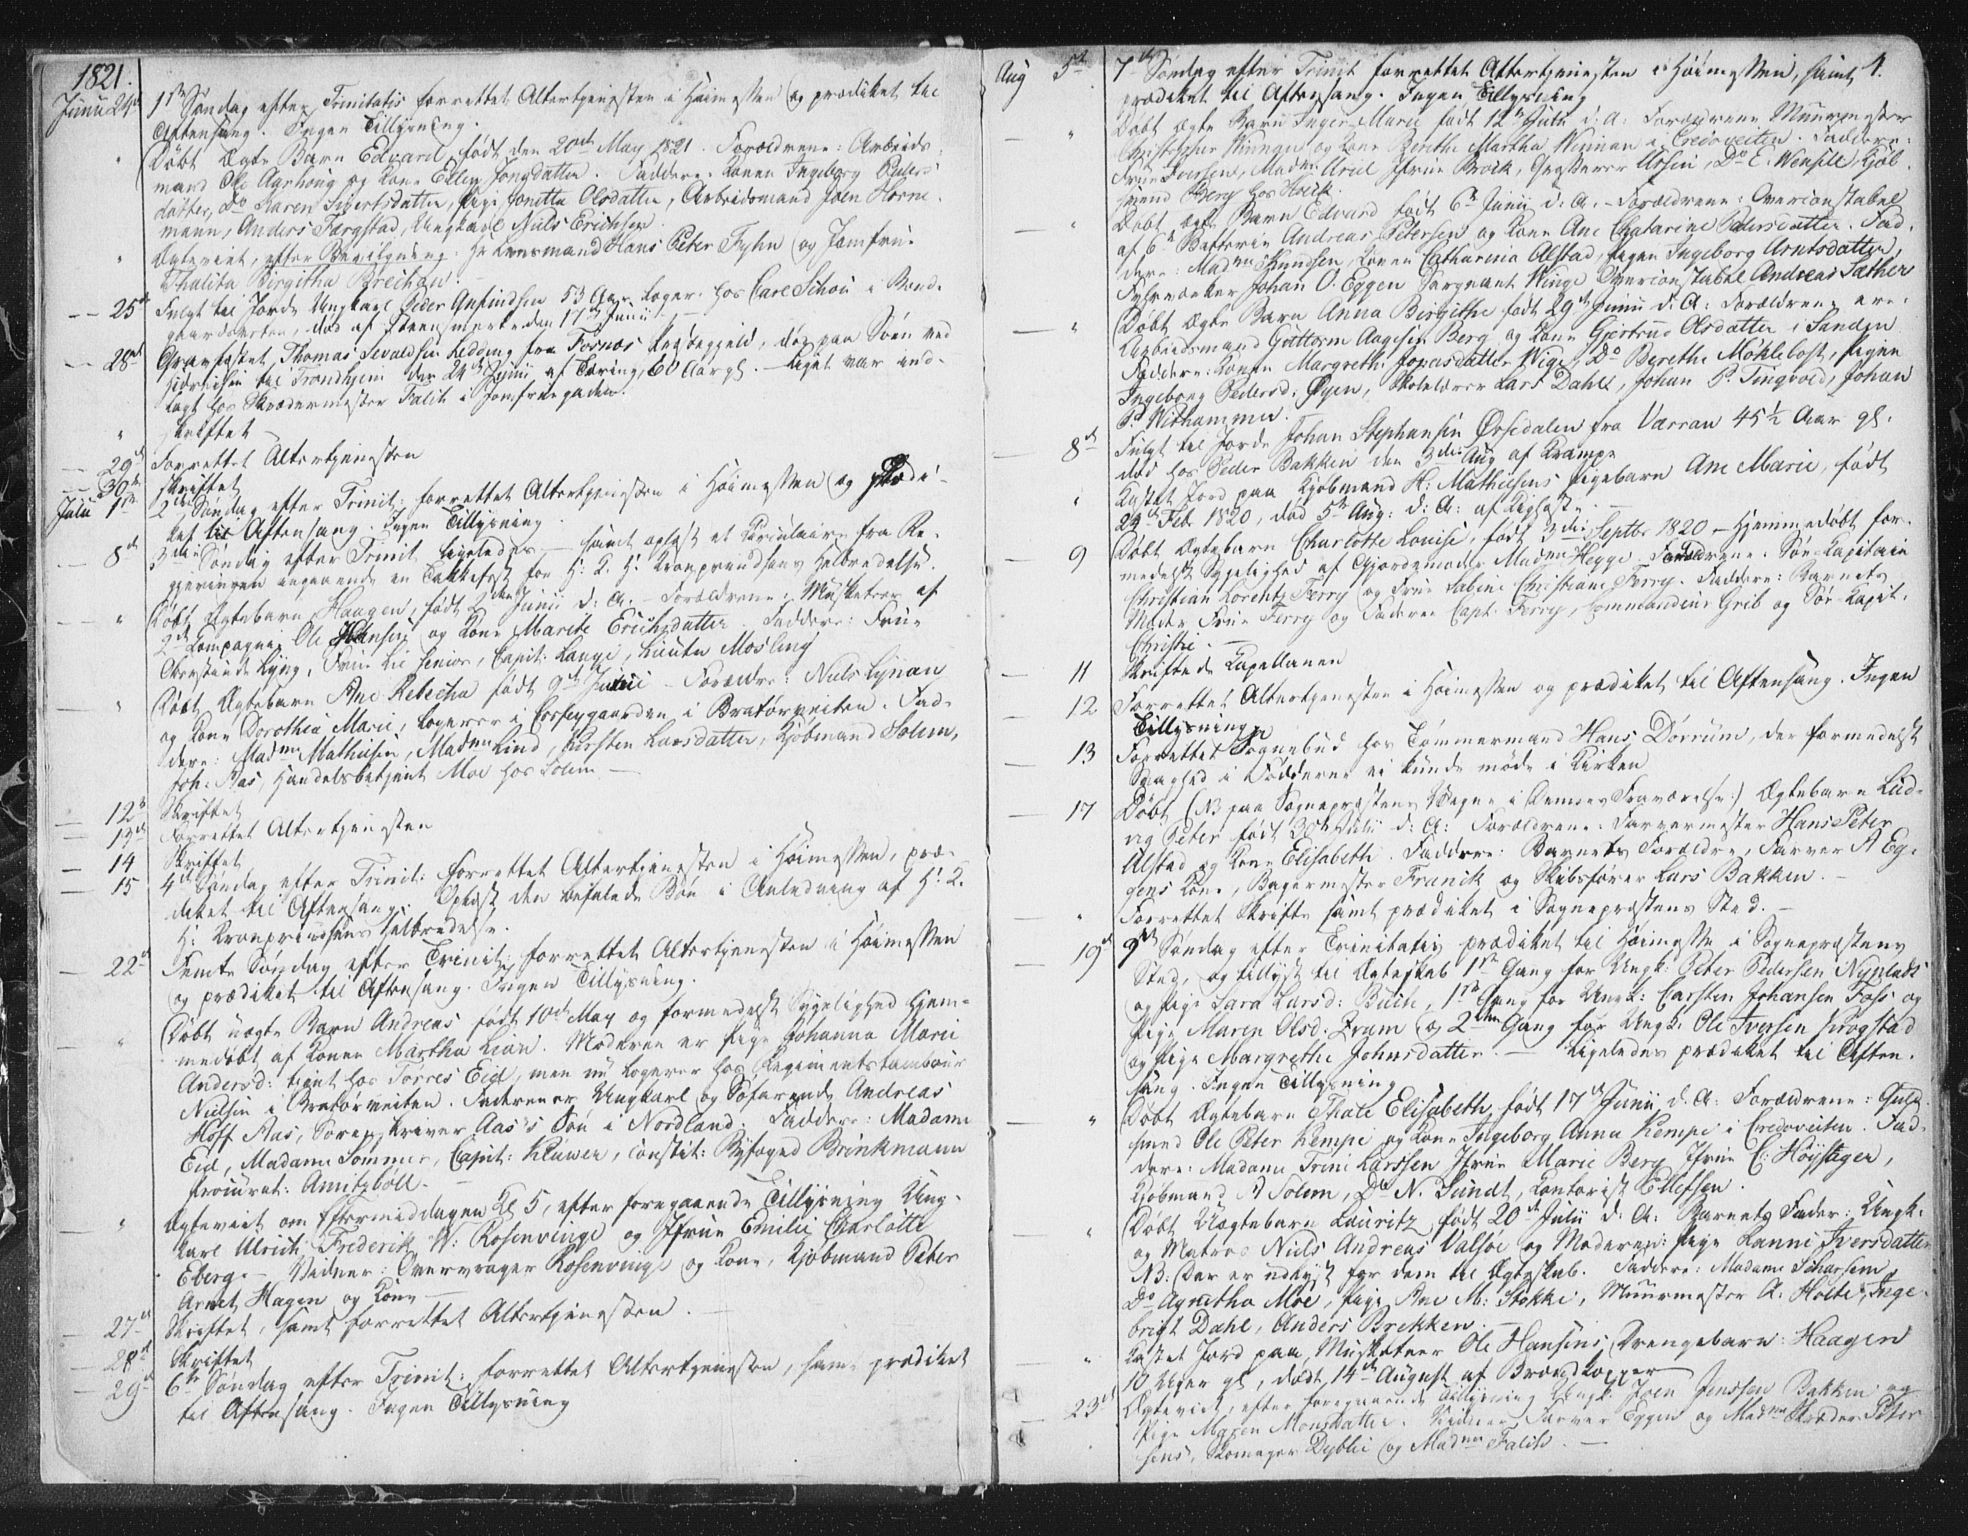 1821.
Junii 24de 1ste Søndag efter Trinitatis forrettet Altertjenesten i Høimessen og prædiket til
Aftensang. Ingen Tillysning.
" Døbt Ægte Barn Edvard født den 20de May 1821. Forældrene: Arbeids-
mand Ole Aarhoug og Kone Ellen Jonsdatter. Faddere: Konen Ingeborg Peders-
datter, Do Karen Sivertsdatter, Pige Jonetta Olsdatter, Arbeidsmand Joen Horne-
mann, Anders Fargstad, Ungkarl Niels Erichsen
" Ægteviet, efter Bevilgning: Hr Lensmand Hans Peter Fyhn og Jomfrue
Thalita Birgitha Brechan.
25de Fulgt til Jorde Ungkarl Peder Gusindsen 53 Aar. Logerer hos Carl Schou i Bond-
gaardsveiten, død af den 17de Junii
28de Gravfæstet Thomas Sevaldsen Ledding fra Fosnæs Præstegjeld, død paa Søen ved
til Trondhjem den 24de Junii af Tæring, 60 Aar gl. - Liget var ind-
lagt hos Skrædermester Falck i Jomfruegaden.
" Skriftet
29de Forrettet Altertjenesten
30te Skriftet
Julii 1ste 2den Søndag efter Trinit: forrettet Altertjenesten i Høimessen og prædi-
ket til Aftensang. Ingen Tillysning.
8de 3die Søndag efter Trinit. ligeledes - samt oplæst et Circulaire fra Re-
gjeringen angaaende en Takkefest for H: K: H: Kronprindsens Helbredelse.
" Døbt Ægtebarn Haagen, født 2den Junii d: A. - Forældrene: Musketeer af
2de Compagnie Ole Hansen og Kone Marite Erichsdatter. Faddere: Frue
Oberstinde Lyng, Frue Lie senior, Capit: Lange, Lieutn Mosling
" Døbt Ægtebarn Ane Rebecha født 9de Junii - Forældre: Niels Lynan
og Kone Dorothea Marie, logerer i i Bratørveiten. Fad-
dere: Madme Mathiesen, Madme Lind, Kirsten Larsdatter, Kjøbmand Solem,
Joh: Aas, Handelsbetjent Moe hos Solem -
12te Skriftet
13de Forrettet Altertjenesten
14 Skriftet
15 4de Søndag efter Trinit: forrettet Altertjenesten i Høimessen, præ-
diket til Aftensang. Oplæst den befalede Bøn i Anledning af H: K.
H: Kronprindsens Helbredelse.
22de Femte Søndag efter Trinit: forrettet Altertjenesten i Høimessen
og prædiket til Aftensang. Ingen Tillysning.
" Døbt uægte Barn Andreas født 10de May og formedelst Sygelighed hjem-
medøbt af Konen Martha Lian. Moderen er Pige Johanna Marie
Andersd: tient hos Tørres Eid, men nu logerer hos Regimentstambour
Nielsen i Bratørveiten. Faderen er Ungkarl og Søfarende Andreas
Hoff Aas, Sorenskriver Aas's Søn i Nordland. Faddere: Madame
Eid, Madame Sommer, Capit: Klüwer, Constit: Byfoged Brinkmann
Procurat: Amitzbøll.
" Ægteviet om Eftermiddagen Kl 5, efter foregaaende Tillysning Ung-
karl Ulrich Frederik W: Rosenvinge og Jfrue Emilie Charlotte
Eberg. - Vidner: Overvrager Rosenvinge og Kone, Kjøbmand Peter
Arnet Hagen og Kone -
27de Skriftet, samt forrettet Altertjenesten.
28de Skriftet
29de 6te Søndag efter Trinit: forrettet Altertjenesten, samt prædiket
til Aftensang. Ingen Tillysning
4.
Aug 5te 7de Søndag efter Trinit forrettet Altertjenesten i Høimessen, samt
prædiket til Aftensang. Ingen Tillysning
" Døbt Ægte Barn Inger Marie født 12te Julii d: A: Forældrene Muurmester
Christopher og Kone Berithe Martha i Credoveiten. Faddere:
Frue Iversen, Madme Uriel Jfrue Brock, Do E. Wensell Kjøb-
svend Berg hos Hoick
" Døbt ægte Barn Edvard født 6te Junii d: A. - Forældrene: Overconstabel
af 6te Batterie Andreas Petersen og Kone Ane Chatarine Pedersdatter. Fad-
dere: Madme Knudsen, Konen Catharina Alstad, Pigen Ingeborg Arntsdatter,
Fyhrværker Johan O. Eggen Sargeant Winge Overconstabel Andreas Sæther
" Døbt Ægte Barn Anna Birgithe født 29de Junii d: A: Forældrene ere:
Arbeidsmand Guttorm Aagesen Berg og Kone Gjertrud Olsdatter i Sanden
Faddere: Konen Margrethe Jonasdatter Wige, Do Berethe Møkleløst, Pigen
Ingeborg Pedersd: Øyen, Skolelærer Lars Dahl, Johan P. Tingvold, Johan
P. Widhammer.
8de Fulgt til Jorde Johan Stephansen Ørsedalen fra Værran 45½ Aar gl.
død hos Peder Bakken den 3die Aug af Krampe
" Kastet Jord paa Kjøbmand H: Mathiesens Pigebarn Ane Marie, født
24de Feb: 1820, død 5te Aug: d: A: af Kighoste -
9 Døbt Ægtebarn Charlotte Louise, født 3die Septbr 1820 - Hjemmedøbt for-
medelst Sygelighed af Gjordemoder Madme Hegge. Forældrene: Søe-Kapitain
Christian Lorentz Ferry og Frue Sabine Christiane Ferry. Faddere: Barnets
Moder Frue Ferry og Faderen Capt: Ferry, Commandeur Grib og Søe-Kapit.
Christie. -
11 Skriftede Kapellanen
12 Forrettet Altertjenesten i Høimessen og prædiket til Aftensang. Ingen
Tillysning
13 Forrettet Sognebud hos Tømmermand Hans Dørrum, der formedelst
Svaghed i Fødderne ei kunde møde i Kirken
17 Døbt (NB paa Sognepræstens Vegne i dennes Fraværelse:) Ægtebarn Lud-
vig Peter født 30te Julii d: A: Forældrene: Farvermester Hans Peter
Alstad og Kone Elisabeth. Faddere: Barnets Forældre, Farver A Eg-
gens Kone, Bagermester Franck og Skibsfører Lars Bakken. -
" Forrettet Skrifte samt prædiket i Sognepræstens Sted. -
19de 9de Søndag efter Trinitatis prædiket til Høimesse i Sognepræstens
Sted, og tillyst til Ægteskab 1ste Gang for Ungk: Peter Pedersen Nyplads
og Pige Sara Larsd: Buch, 1ste Gang for Ungk: Carsten Johansen Foss og
Pige Maren Olsd: Bram og 2den Gang for Ungk: Ole Iversen Krogstad
og Pige Margrethe Johnsdatter. - Ligeledes prædiket til Aften-
sang. Ingen Tillysning
" Døbt Ægtebarn Thale Elisabeth, født 17de Junii d. A: Forældrene: Guld-
smed Ole Peter Kempe og Kone Ingeborg Anna Kempe i Credoveiten. Fad-
dere: Madame Trine Larssen Jfrue Marie Berg Jfrue C: Høyslager,
Kjøbmand A Solem, Do N. Sundt, Contorist Ellefsen.
" Døbt Uægtebarn Lauritz født 20de Julii d: A: Barnets Fader: Ungk:
og Matros Niels Andreas Valsøe og Moderen: Pige Hanne Iversdatter
NB: Der er udlyst for dem til Ægteskab. Faddere: Madame Scharsem,
Do Agnetha Moe, Pige Ane M: Stokke, Muurmester A. Holte, Inge-
brigt Dahl, Anders Brekken.
" Kastet Jord paa Musketeer Ole Hansens Drengebarn Haagen
10 Uger gl, dødt 14de August af Brændkopper
23de Ægteviet, efter foregaaende Tillysning Ungk: Joen Jenssen Bakken og
Pige Maren Monsdatter. Vidner: Farver Eggen og Madme Skræder Peter-
sens, Skomager Dyblie og Madme Falch. -